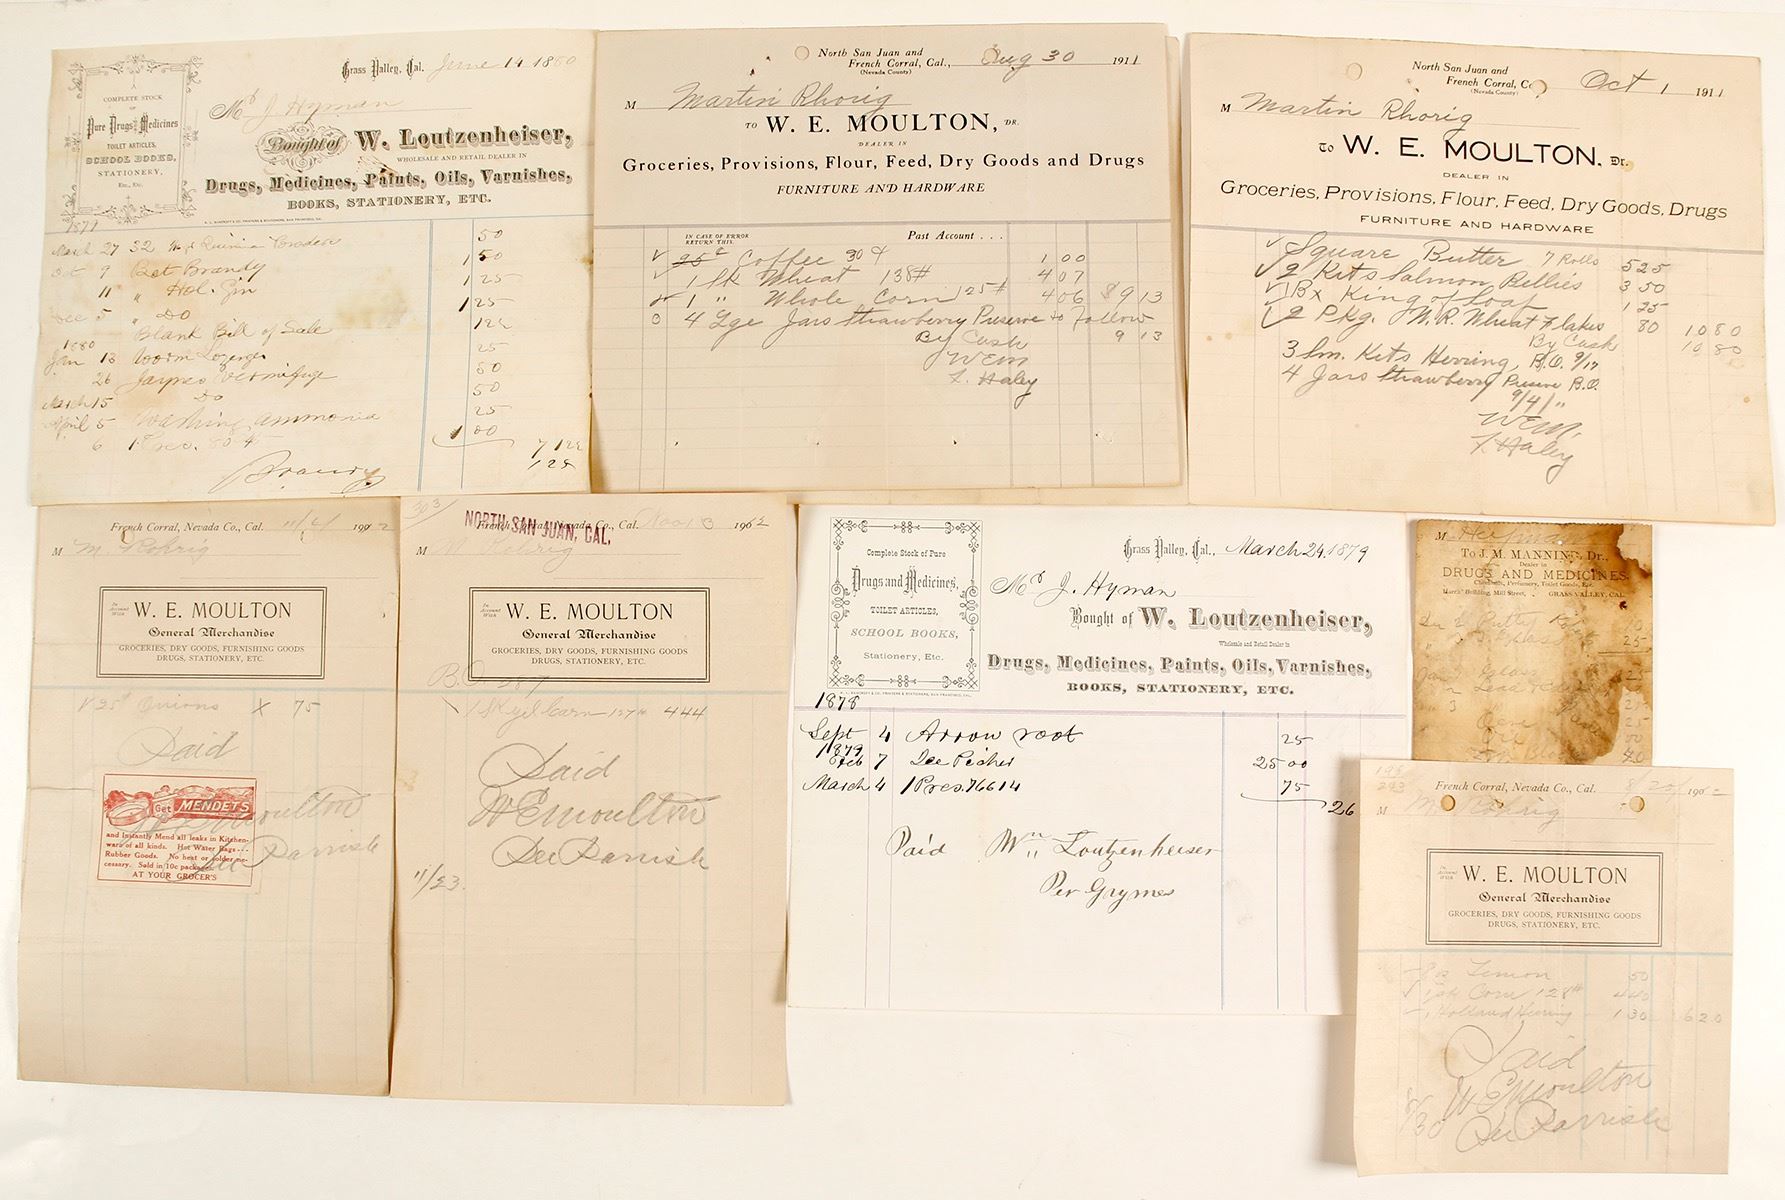 A
COMPLETE STOCK
OF
Pure Drugs and Medicines
TOILET ARTICLES,
SCHOOL BOOKS,
STATIONERY,
Etc., Etc.
Grass Valley, Cal. June 14 1880
Mr J. Hyman
Bought of W. Loutzenheiser,
WHOLESALE AND RETAIL DEALER IN
Drugs, Medicines, Paints, Oils, Varnishes,
BOOKS, STATIONERY, ETC.
March 27 32 50
Oct 9 Bot Brandy 1 50
11 " Hol. Gin 1 25
Dec 5 " Do 1 25
Blank Bill of Sale
1880
Jan 13 Worm Lozenges 25
26 Jaynes Vermifuge 50
March 15 Do 50
April 5 Washing Ammonia 25
6 1 Pres. 1 00
North San Juan and
French Corral, Cal., Aug 30 1911
(Nevada County)
M Martin Rhorig
TO W. E. MOULTON, DR.
DEALER IN
Groceries, Provisions, Flour, Feed, Dry Goods and Drugs
FURNITURE AND HARDWARE
IN CASE OF ERROR
RETURN THIS.
Past Account . . .
Coffee 30 ¢ 1 00
1 Sk Wheat 138# 4 07
1 " Whole Corn 125# 4 06 9 13
4 Lge Jars Strawberry Preserve to Follow
By Cash 9 13
WEM
F. Haley
North San Juan and
French Corral, Ca
(Nevada County)
Oct 1 1911
M Martin Rhorig
To W. E. MOULTON. Dr.
DEALER IN
Groceries, Provisions, Flour, Feed, Dry Goods, Drugs
FURNITURE AND HARDWARE
Square Butter 7 Rolls 5 25
2 Kits Salmon Bellies 3 50
1 Bx King of Loaf 1 25
2 Pkg. Wheat Flakes 80 10 80
By Cash 10 80
3 Sm. Kits Herring, B.O. 9/17
4 Jars Strawberry Preserve B.O.
9/4/ "
WEM.
F Haley
French Corral, Nevada Co., Cal. 190 2
M M. Rohrig
In
Account
With
W. E. MOULTON
General Merchandise
GROCERIES, DRY GOODS, FURNISHING GOODS
DRUGS, STATIONERY, ETC.
25# Onions X 75
Paid
Get MENDETS
and Instantly Mend all leaks in Kitchen-
ware of all kinds. Hot Water Bags
Rubber Goods. No heat or solder ne-
cessary. Sold in 10c packages.
AT YOUR GROCER'S
W E Moulton
Per Parrish
303/
NORTH SAN JUAN, CAL.
French Corral, Nevada Co., Cal. Nov 3 190 2
M M Rohrig
In
Account
With
W. E. MOULTON
General Merchandise
GROCERIES, DRY GOODS, FURNISHING GOODS
DRUGS, STATIONERY, ETC.
B.O 287
1 Sk yel Corn 4 44
Paid
W E Moulton
Per Parrish
11/23.
Complete Stock of Pure
Drugs and Medicines,
TOILET ARTICLES,
SCHOOL BOOKS,
Stationery, Etc.
Grass Valley, Cal., March 24, 1879
Mr J. Hyman
Bought of W. Loutzenheiser,
Wholesale and Retail Dealer in
Drugs, Medicines, Paints, Oils, Varnishes,
BOOKS, STATIONERY, ETC.
1878
Sept 4 Arrow root 25
1879
Feb 7 Ice Picher 25 00
March 4 1 Pres. 76614 75
26
Paid Wm Loutzenheiser
Per Grymes
M Heyman
To J. M. MANNING, Dr.,
Dealer in
DRUGS AND MEDICINES,
Chemicals, Perfumery, Toilet Goods, Etc.
Marsh' Building, Mill Street, GRASS VALLEY, CAL.
Putty
Glass 25
French Corral, Nevada Co., Cal. 8/20/ 190 2
M M. Rohrig
In
Account
With
W. E. MOULTON
General Merchandise
GROCERIES, DRY GOODS, FURNISHING GOODS
DRUGS, STATIONERY, ETC.
Lemon 50
1 sk Corn 128# 4 40
1 Holland Herring 1 30 6 20
Paid
W E Moulton
Per Parrish
8/30